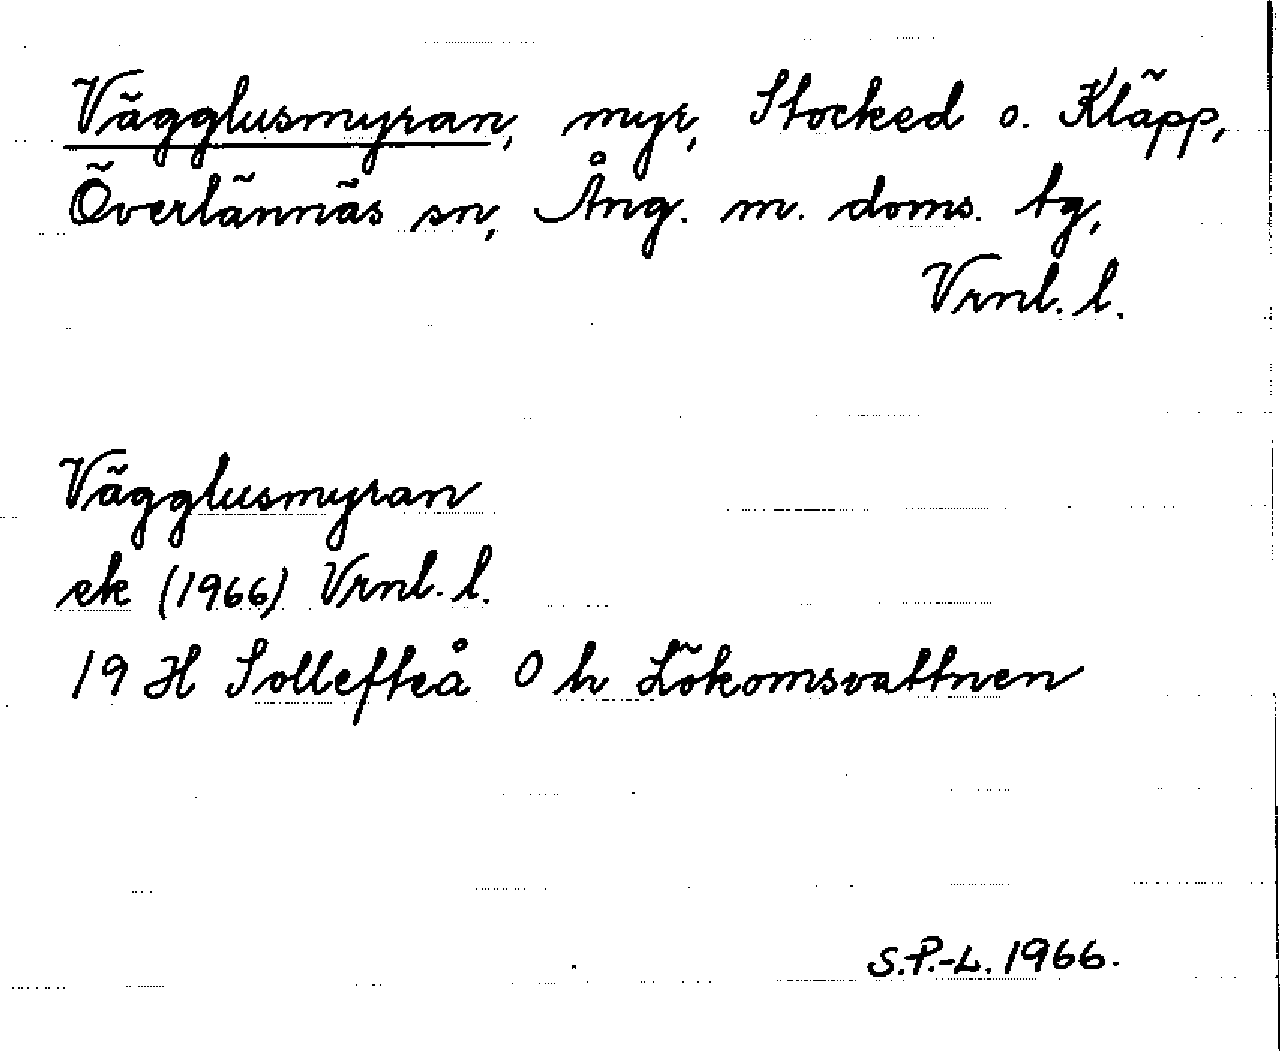 Vägglusmyran, myr, Stocked o. Kläpp,
Överlännäs sn, Ång. m. doms. tg,
Vrnl. l.
Vägglusmyran
ek (1966) Vrnl. l.
19 H Sollefteå 0 h Lökomsvattnen
S.P.-L. 1966.